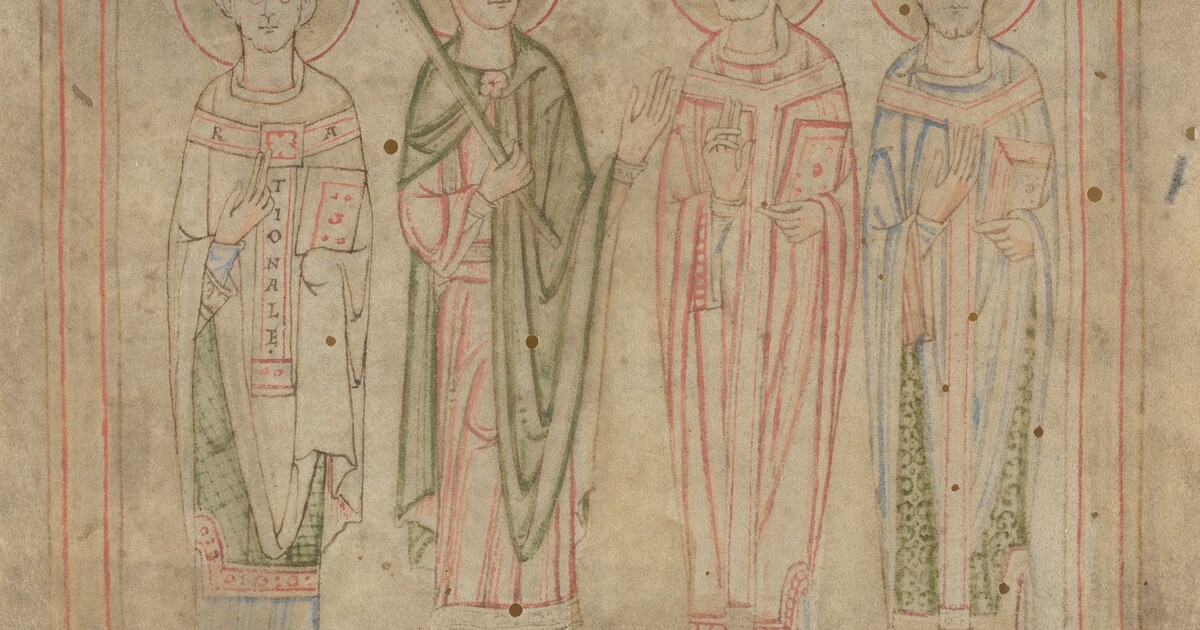 R A
TIONALE.